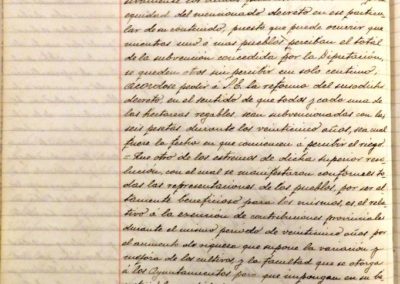 equidad del mencionado decreto en ese particu
lar de su contenido, puesto que puede ocurrir que
mientras uno ó mas pueblos perciban el total
de la subvencion concedida por la Diputación,
se queden otros sin percibir un solo centimo.
Acordose pedir á S.E. la reforma del susodicho
decreto, en el sentido de que todas y cada una de
las hectareas regables, sean subvencionadas con las
seis pesetas durante los veinticinco años, sea cual
fuere la fecha en que comiencen á percibir el riego
= Que otro de los extremos de dicha superior reso-
lución, con el cual se manifestaron conformes to
das las representaciones de los pueblos, por ser al
tamente beneficioso para los mismos, es el rela
tivo á la exencion de contribuciones provinciales
durante el mismo periodo de veinticinco años por
el aumento de riqueza que supone la variacion y
mejora de los cultivos, y la facultad que se otorga
á los Ayuntamientos para que impongan en su be